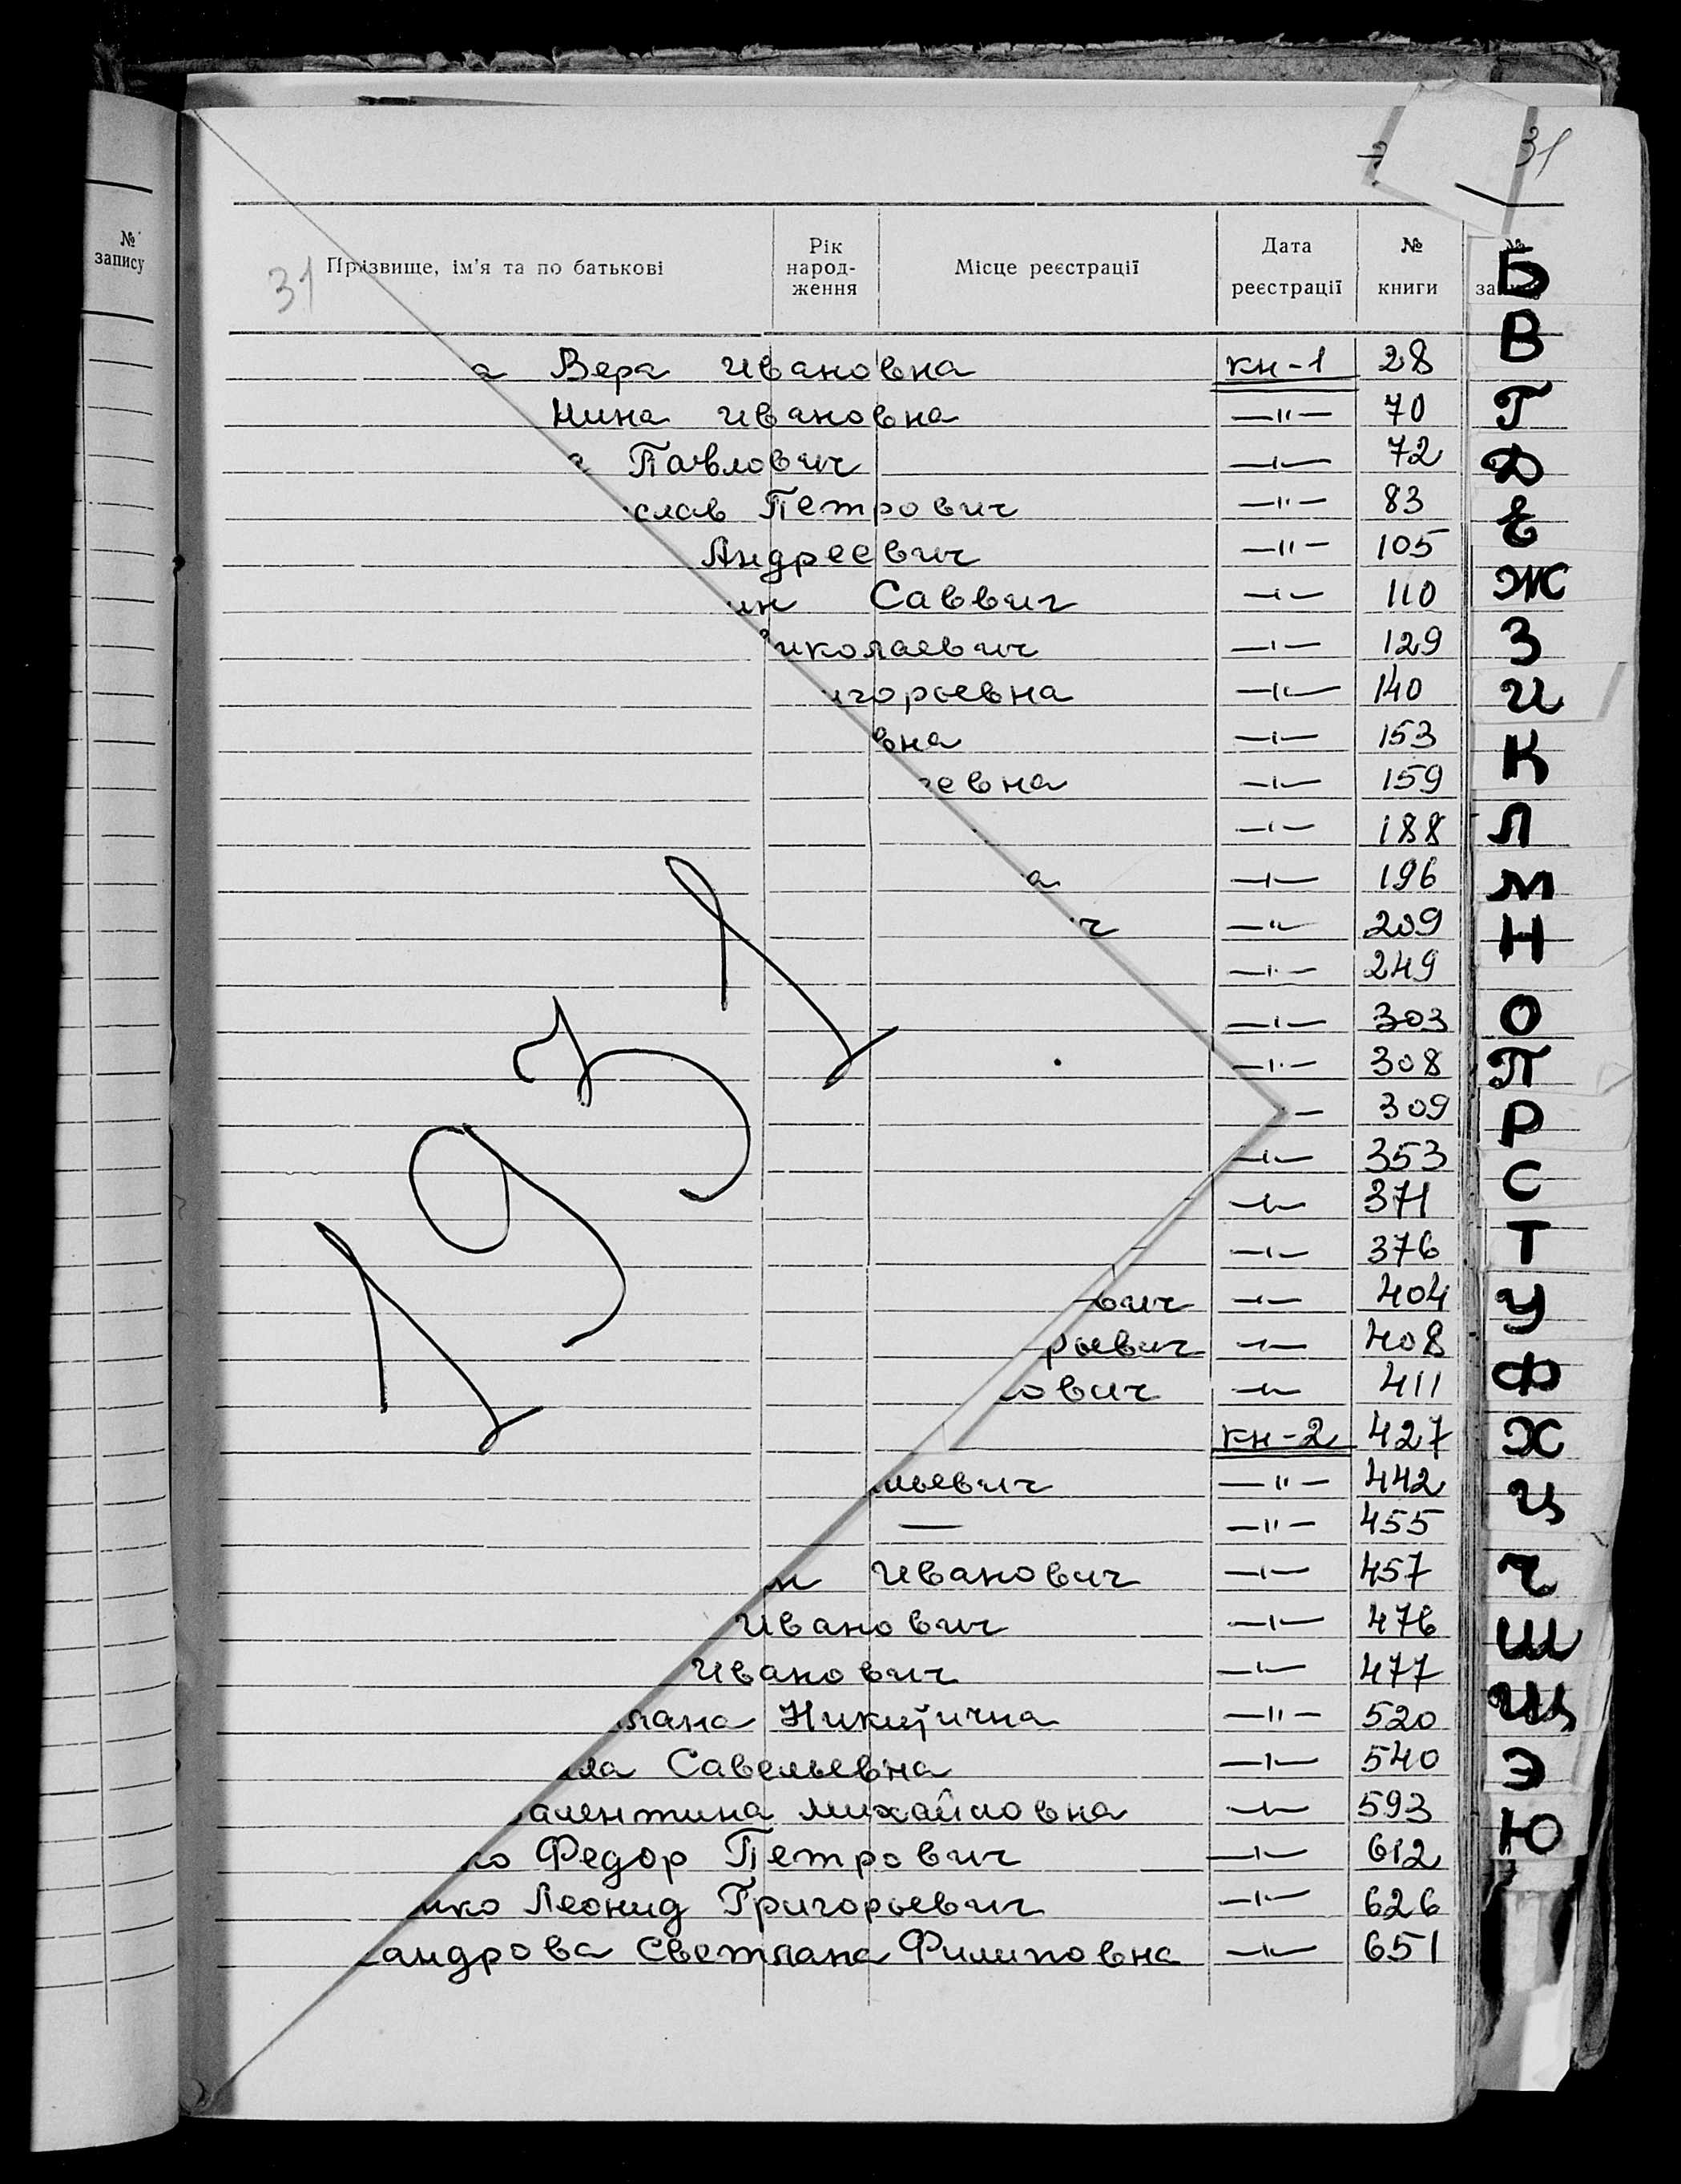 31
№ запису
31 Прізвище, ім'я та по батькові Рік народження Місце реєстрації Дата реєстрації № книги
а Вера Ивановна кн-1 28
Нина Ивановна —"— 70
а Павлович —"— 72
слав Петрович —"— 83
Андреевич —"— 105
ин Саввич —"— 110
иколаевич —"— 129
игорьевна —"— 140
вна —"— 153
евна —"— 159
—"— 188
а —"— 196
ч —"— 209
—"— 249
—"— 303
—"— 308
— 309
—"— 353
—"— 371
—"— 376
вич —"— 404
рьевич —"— 408
ович —"— 411
кн-2 427
льевич —"— 442
— —"— 455
н Иванович —"— 457
Иванович —"— 476
Иванович —"— 477
лана Никитична —"— 520
ла Савельевна —"— 540
алентина Михайловна —"— 593
ко Федор Петрович —"— 612
нко Леонид Григорьевич —"— 626
андрова Светлана Филиповна —"— 651
1931
Б
В
Г
Д
Е
Ж
З
И
К
Л
М
Н
О
П
Р
С
Т
У
Ф
Х
Ц
Ч
Ш
Щ
Э
Ю